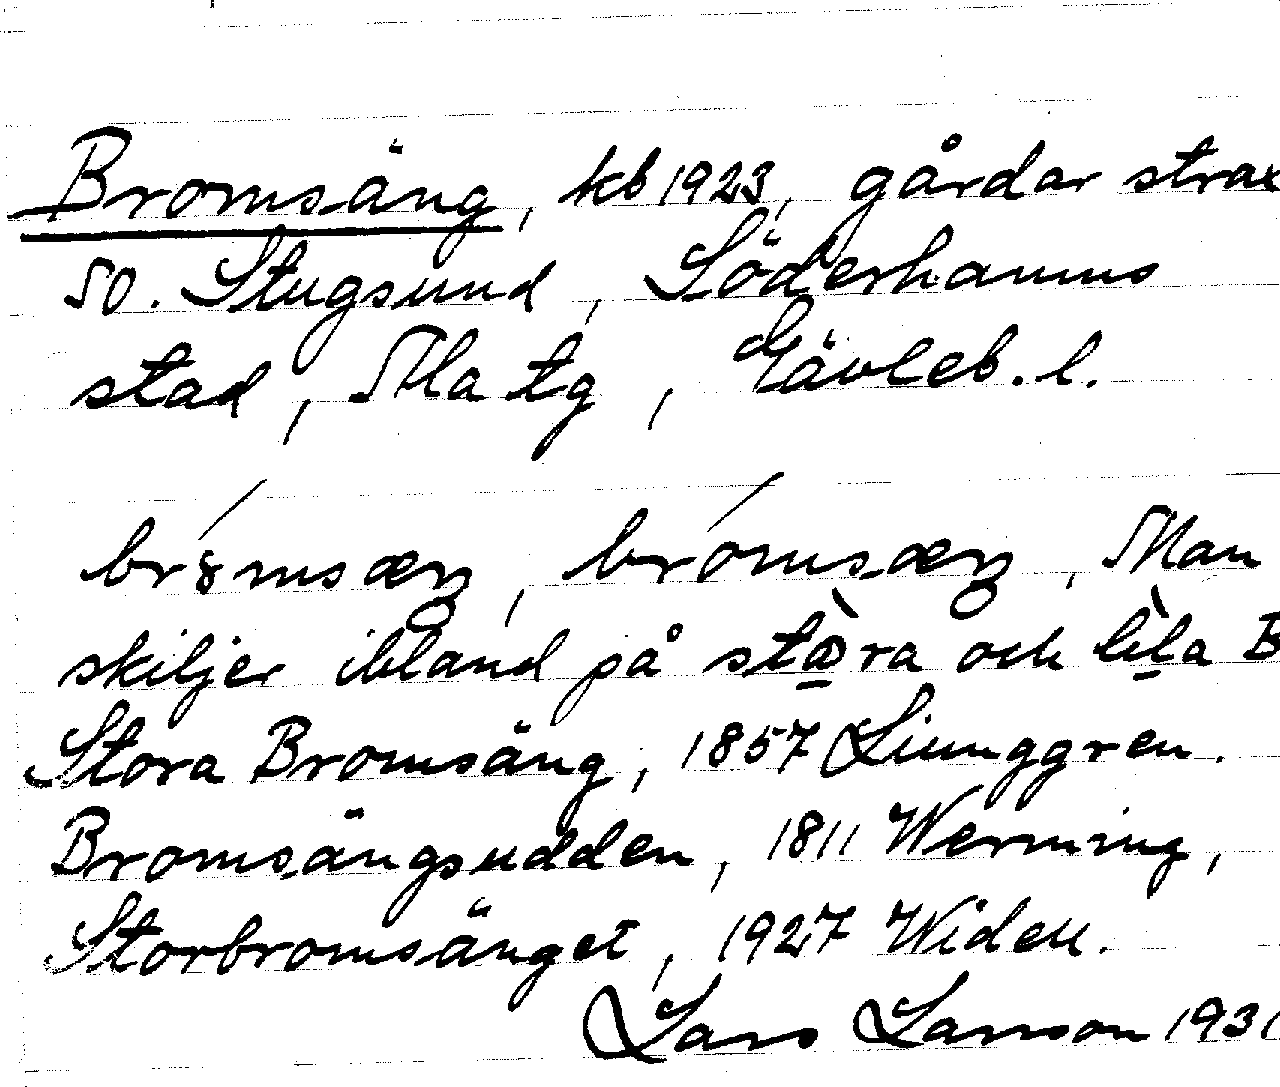 Bromsäng, kb 1923, gårdar strax
SO. Stugsund, Söderhamns
stad, Ala tg, Gävleb. l.
br8́msæŋ, brómsæŋ, Man
skiljer ibland på stà̱ra och lìla B
Stora Bromsäng, 1857 Ljunggren.
Bromsängsudden, 1811 Werming,
Storbromsänget, 1927 Widen.
Lars Larsson 1931